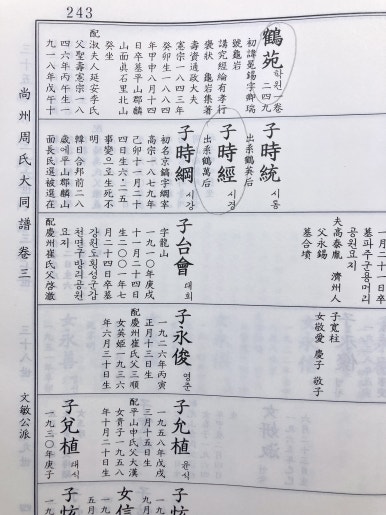 243
尙州周氏大同譜 卷三
文敏公派
鶴苑 학원 一卷 二四九
號龜岩
講究經綸有孝行
褒狀 龜岩集著
壽資通政大夫
憲宗一八四三年
癸卯生一八八四
年甲申八月十四
日卒墓平山郡麟
山面眞石里北山
癸坐
配淑夫人延安李氏
父聖壽憲宗一八
四六年丙午生一
九一八年戊午十
子時統 시통
出系鶴英后
子時經 시경
出系鶴萬后
子時綱 시강
初名京鎬字綱宰
高宗一八七九年
己卯十一月二十
四日生六·二五
事變으로生死不
明
韓日合邦前二八
歲에平山郡麟山
面長民選被選在
一月二十一日卒
墓파주군용머리
공원묘지
夫高泰胤 濟州人
父永錫
墓合墳
子台會 대회
字龍山
一九一○年庚戌
十一月二十四日
生二○○一年七
月二十四日卒墓
강원도횡성군감
천면구방리공원
묘지
配慶州崔氏父啓澈
子寬柱
女敬愛 慶子 敬子
子永俊 영준
一九二六年丙寅
正月十三日生
配慶州崔氏父三順
女英姬一九三六
年六月三十日生
子允植 윤식
一九五八年戊戌
三月十五日生
配平山申氏父大漢
女貴子一九五八
年十月二十日生
子兌植 태식
一九三○年庚子
子炫
一九
五月
女信
年九
子炫
一九